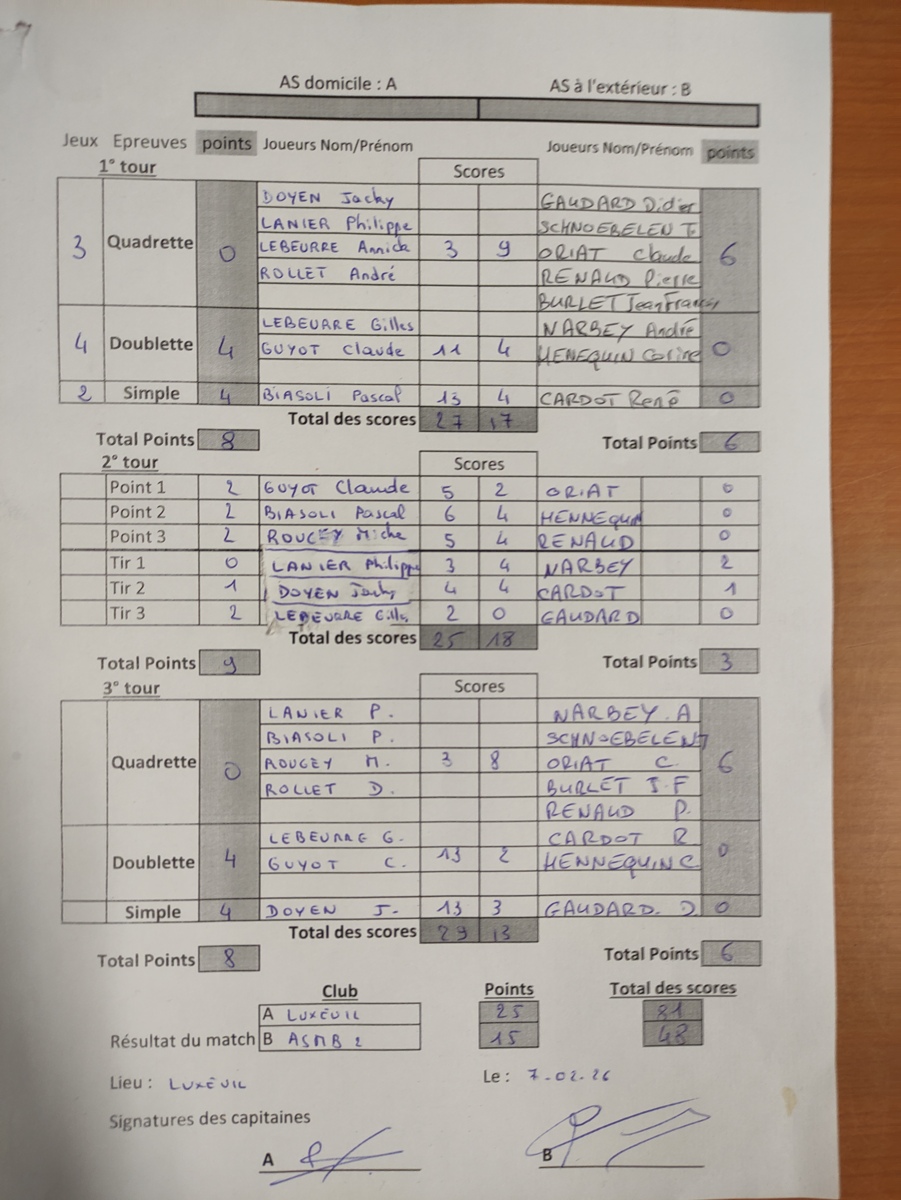 AS domicile : A AS à l'extérieur : B
Jeux Epreuves points Joueurs Nom/Prénom Joueurs Nom/Prénom points
1° tour Scores
DOYEN Jacky GAUDARD Didier
LANIER Philippe SCHNOEBELEN T
3 Quadrette 0 LEBEURRE Annick 3 9 ORIAT Claude 6
ROLLET André RENAUD Pierre
BURLET Jean Francis
LEBEURRE Gilles NARBEY André
4 Doublette 4 GUYOT Claude 11 4 HENEQUIN Corine 0
2 Simple 4 BIASOLI Pascal 13 4 CARDOT René 0
Total des scores 27 17
Total Points 8 Total Points 6
2° tour Scores
Point 1 2 GUYOT Claude 5 2 ORIAT 0
Point 2 2 BIASOLI Pascal 6 4 HENNEQUIN 0
Point 3 2 ROUCEY Miche 5 4 RENAUD 0
Tir 1 0 LANIER Philippe 3 4 NARBEY 2
Tir 2 1 DOYEN Jacky 4 4 CARDOT 1
Tir 3 2 LEBEURRE Gilles 2 0 GAUDARD 0
Total des scores 25 18
Total Points 9 Total Points 3
3° tour Scores
LANIER P. NARBEY.A
BIASOLI P. SCHNOEBELEN T
Quadrette 0 ROUCEY M. 3 8 ORIAT C. 6
ROLLET D. BURLET J.F
RENAUD P.
LEBEURRE G. CARDOT R.
Doublette 4 GUYOT C. 13 2 HENNEQUIN C 0
Simple 4 DOYEN J. 13 3 GAUDARD. D. 0
Total des scores 29 13
Total Points 8 Total Points 6
Club Points Total des scores
A LUXEUIL 25 81
Résultat du match B ASMB 2 15 48
Lieu : LUXEUIL Le : 7-02-26
Signatures des capitaines
A B